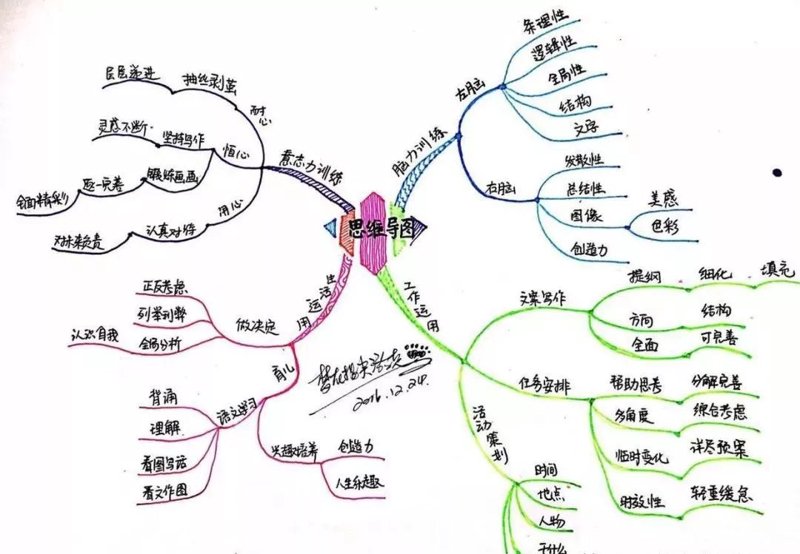 思维导图
脑力训练
左脑
条理性
逻辑性
全局性
结构
文字
右脑
发散性
总结性
图像
美感
色彩
创造力
工作运用
文案写作
提纲
细化
填充
方向
结构
全面
可完善
任务安排
帮助思考
分解完善
多角度
综合考虑
临时变化
详尽预案
时效性
轻重缓急
活动策划
时间
地点
人物
干什么
生活运用
做决定
正反考虑
列举利弊
全局分析
认识自我
育儿
语文学习
背诵
理解
看图写话
看文作图
兴趣培养
创造力
人生乐趣
意志力训练
耐心
抽丝剥茧
层层递进
恒心
坚持写作
灵感不断
锻炼画画
逐一完善
全面精彩
用心
认真对待
对未来负责
2016.12.24